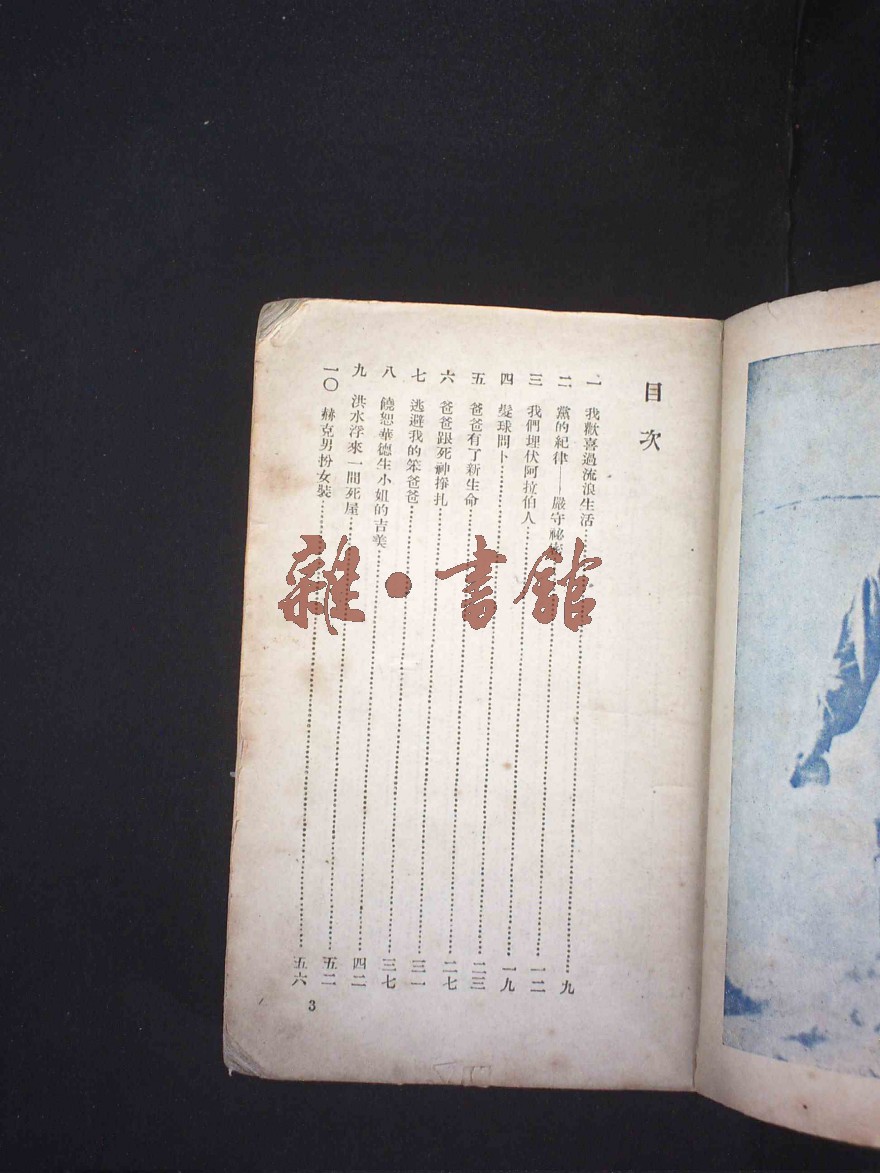 目次
一 我歡喜過流浪生活……九
二 黨的紀律——嚴守祕密……一二
三 我們埋伏阿拉伯人……一九
四 髮球問卜……二三
五 爸爸有了新生命……二七
六 爸爸跟死神掙扎……三一
七 逃避我的笨爸爸……三七
八 饒恕華德生小姐的吉美……四二
九 洪水浮來一間死屋……五二
一〇 赫克男扮女裝……五六
3
雜·書館